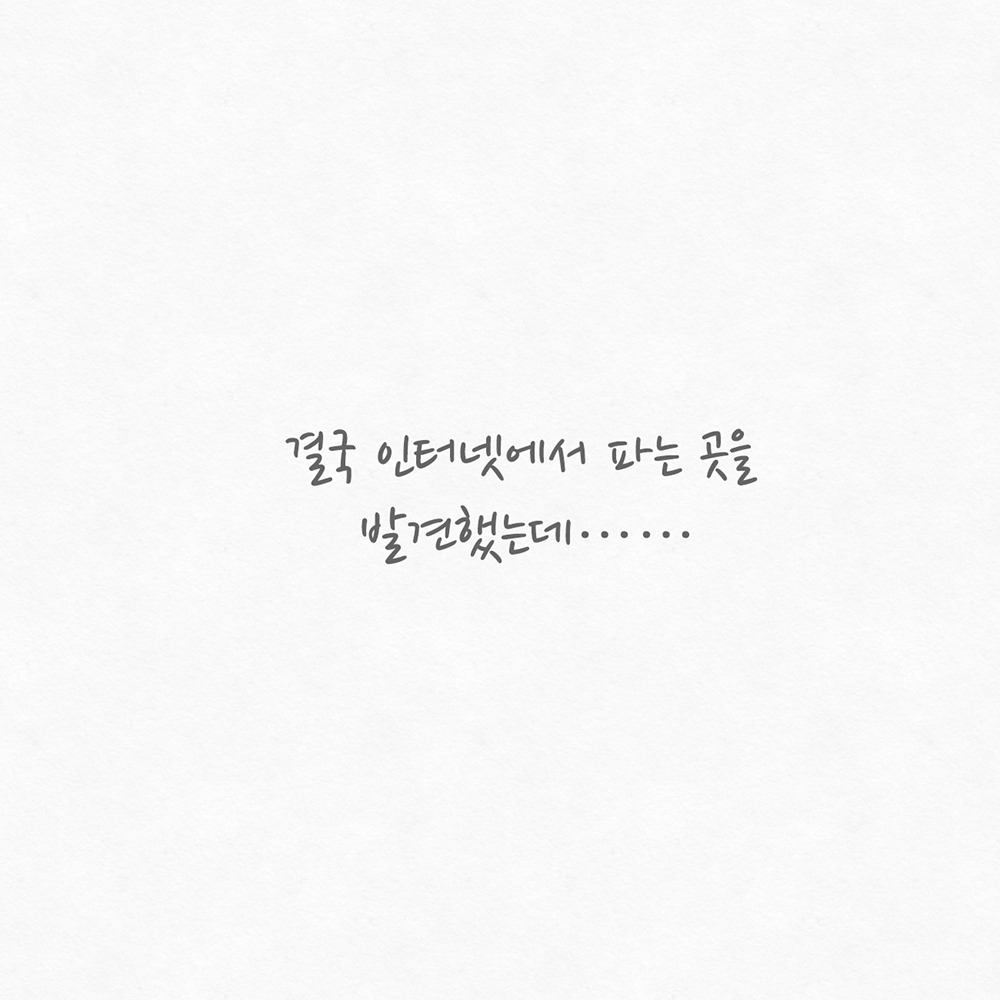 결국 인터넷에서 파는 곳을
발견했는데······